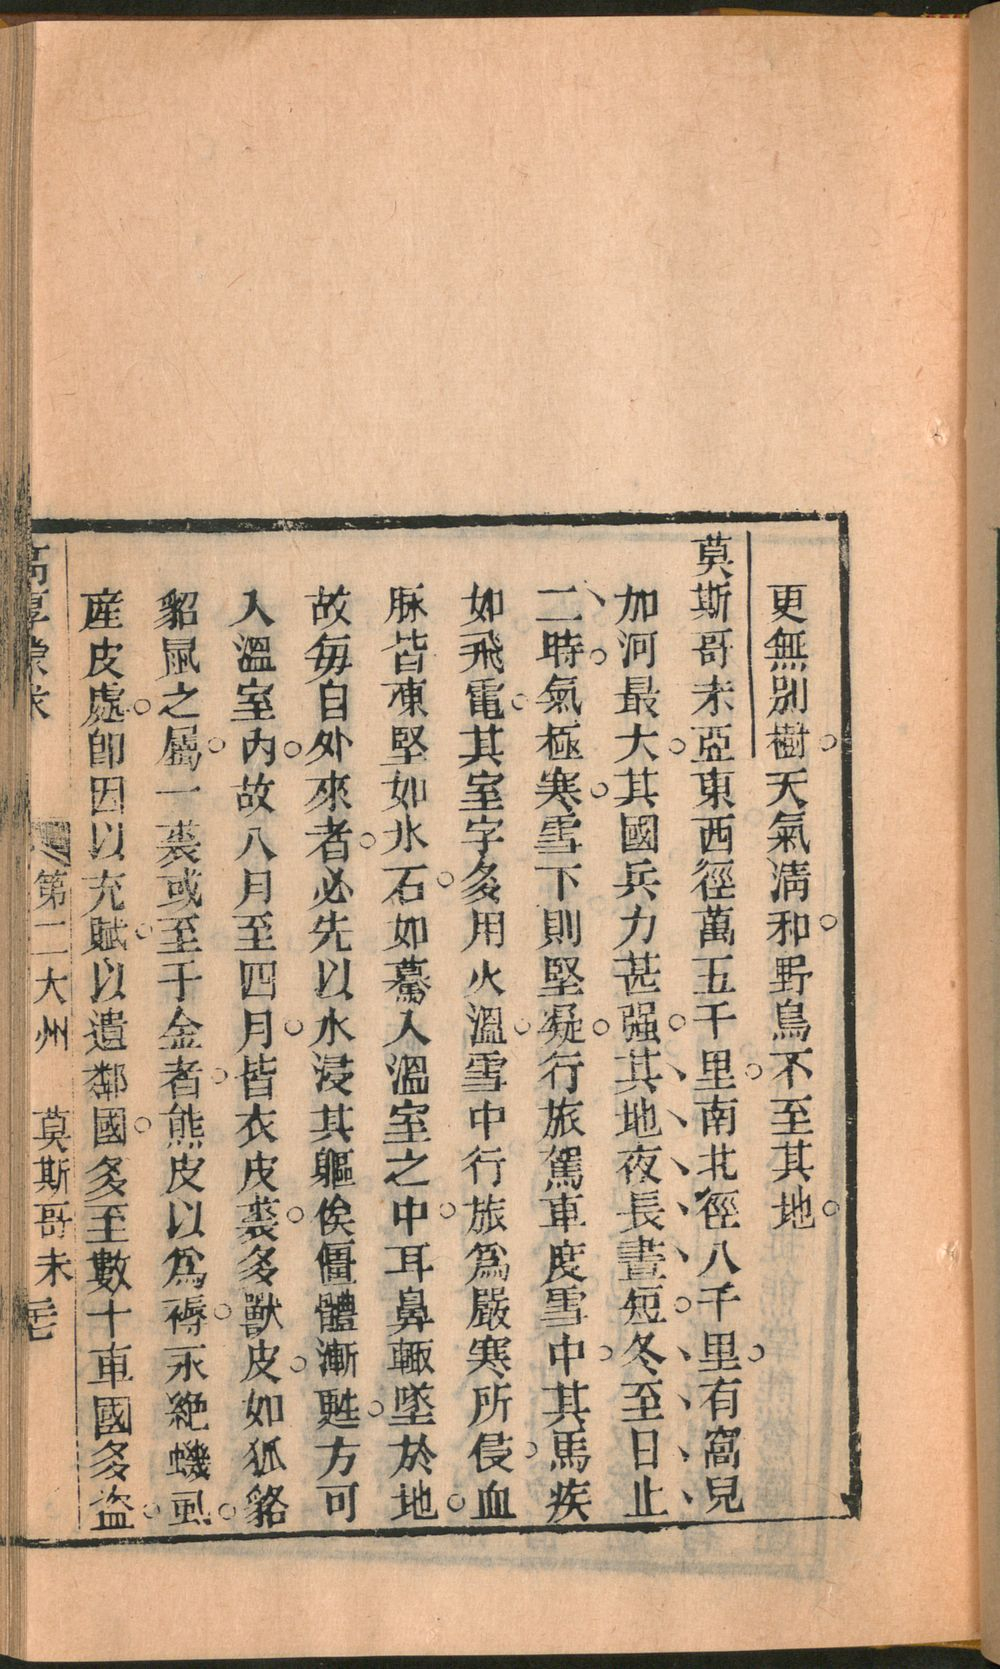 更無別樹天氣淸和野鳥不至其地
莫斯哥未亞東西徑萬五千里南北徑八千里有窩兒
加河最大其國兵力甚强其地夜長晝短冬至日止
二時氣極寒雪下則堅凝行旅駕車度雪中其馬疾
如飛電其室宇多用火溫雪中行旅爲嚴寒所侵血
脉皆凍堅如氷石如驀入溫室之中耳鼻輙墜於地
故每自外來者必先以水浸其軀俟僵體漸甦方可
入溫室內故八月至四月皆衣皮裘多獸皮如狐貉
貂鼠之屬一裘或至千金者熊皮以爲褥永絕蟣虱
產皮處卽因以充賦以遺鄰國多至數十車國多盜
高厚蒙求
第二大州 莫斯哥未